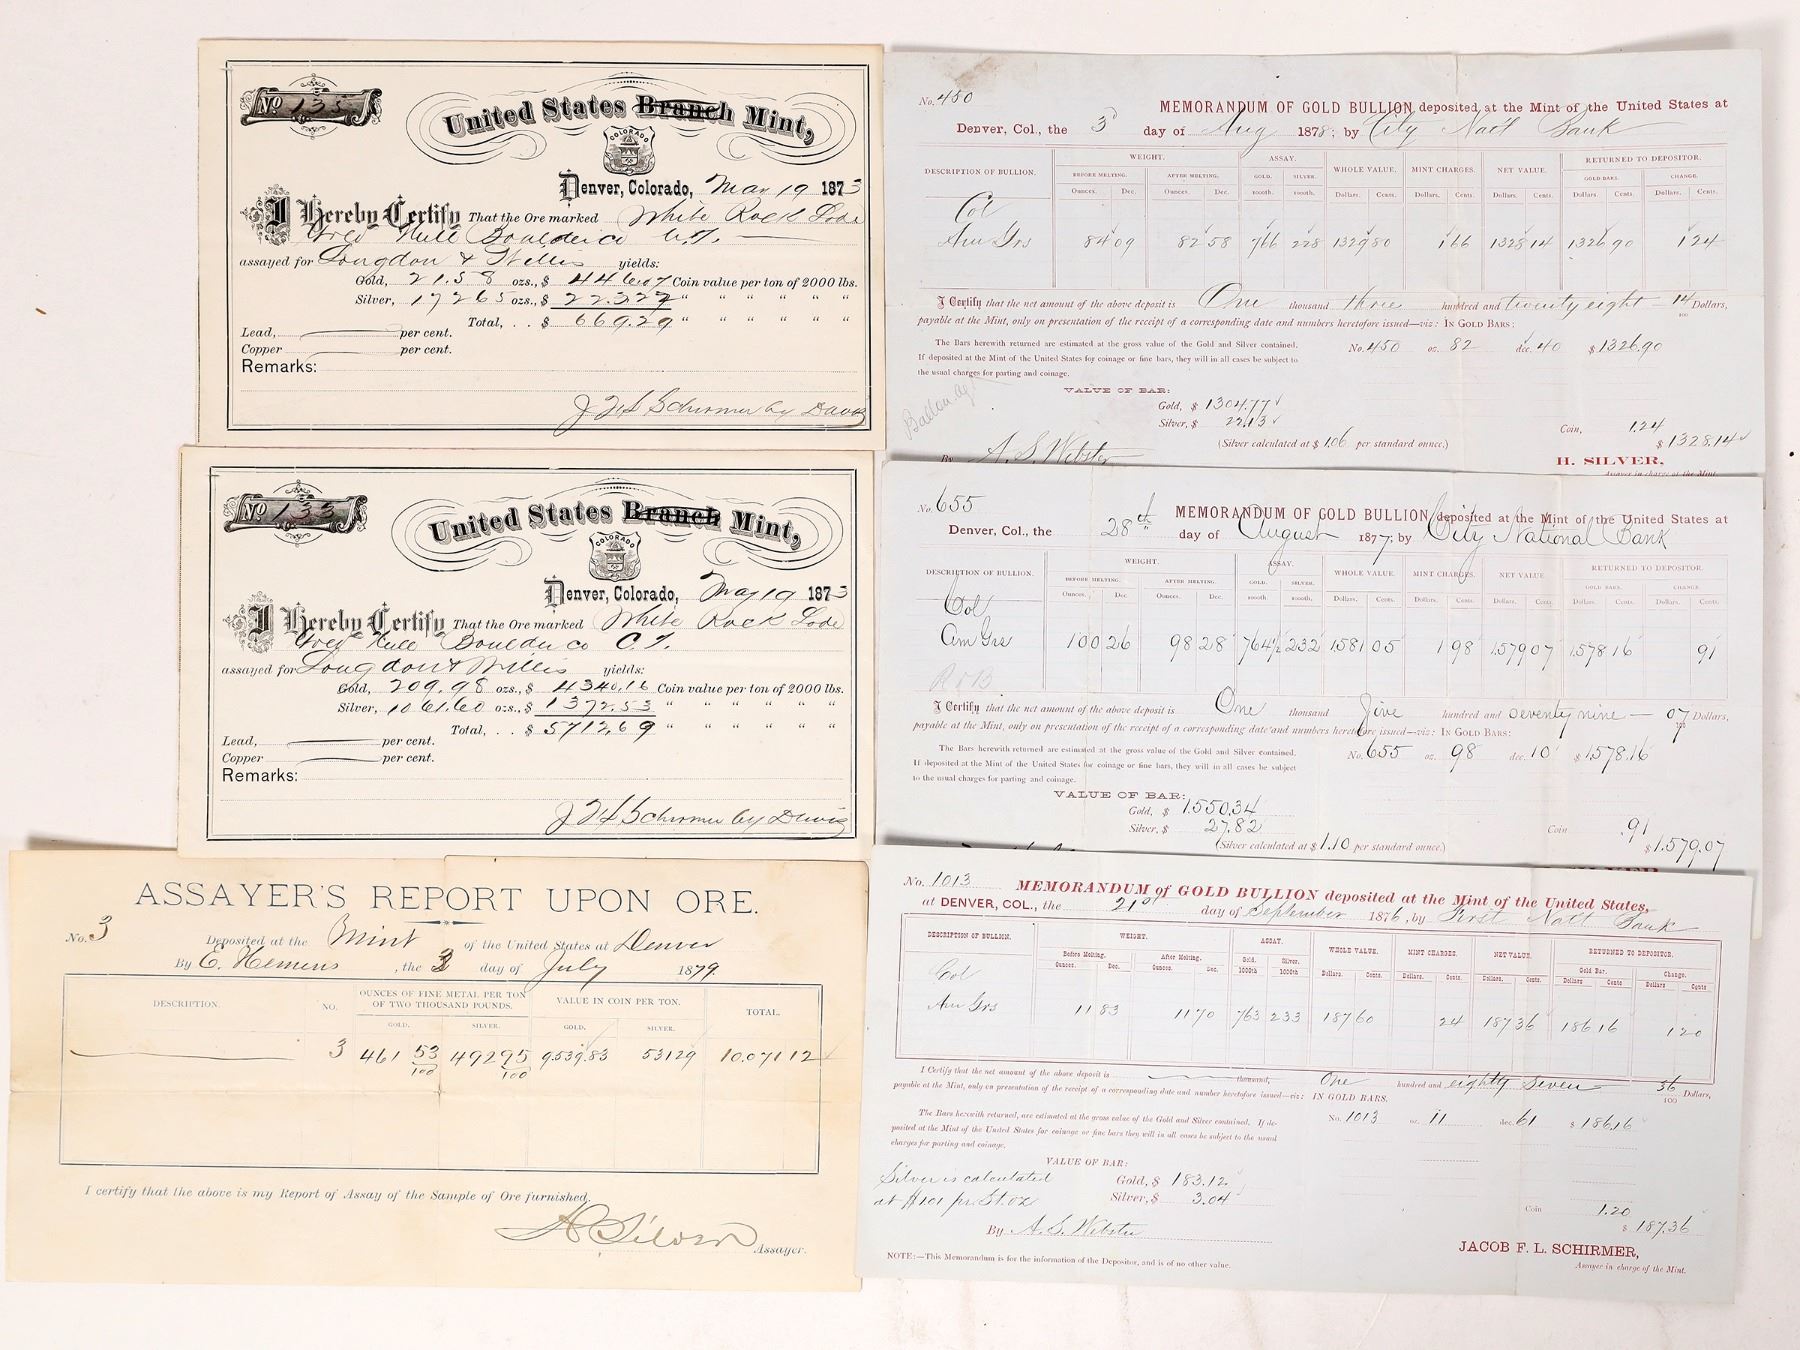 No 135
United States Branch Mint,
COLORADO
Denver, Colorado, May 19 1873
I Hereby Certify That the Ore marked White Rock Lode
Gold Hill Boulder co
assayed for Longdon & Willis yields:
Gold, 21.58 ozs., $ 446.07 Coin value per ton of 2000 lbs.
Silver, 172.65 ozs., $ 223.22 " " " " " "
Total, . . $ 669.29 " " " " " "
Lead, per cent.
Copper per cent.
Remarks:
J F L Schirmer by Davis
No 133
United States Branch Mint,
COLORADO
Denver, Colorado, May 19 1873
I Hereby Certify That the Ore marked White Rock Lode
Gold Hill Boulder co C.T.
assayed for Longdon & Willis yields:
Gold, 209.98 ozs., $ 4340.16 Coin value per ton of 2000 lbs.
Silver, 1061.60 ozs., $ 1372.53 " " " " " "
Total, . . $ 5712.69 " " " " " "
Lead, per cent.
Copper per cent.
Remarks:
J F L Schirmer by Davis
ASSAYER'S REPORT UPON ORE.
No. 3
Deposited at the Mint of the United States at Denver
By C. Hemens, the 3 day of July 1879.
DESCRIPTION. NO. OUNCES OF FINE METAL PER TON OF TWO THOUSAND POUNDS. VALUE IN COIN PER TON. TOTAL.
GOLD. SILVER. GOLD. SILVER.
3 461 53/100 492 95/100 9,539.83 531 29 10.071 12
I certify that the above is my Report of Assay of the Sample of Ore furnished.
H Silver
Assayer.
No. 450
MEMORANDUM OF GOLD BULLION, deposited at the Mint of the United States at
Denver, Col., the 3d day of Aug 1878; by City Nat'l Bank
DESCRIPTION OF BULLION. WEIGHT. ASSAY. WHOLE VALUE. MINT CHARGES. NET VALUE. RETURNED TO DEPOSITOR.
BEFORE MELTING. AFTER MELTING. GOLD. SILVER. GOLD BARS. CHANGE.
Ounces. Dec. Ounces. Dec. 1000th 1000th. Dollars. Cents. Dollars. Cents. Dollars. Cents. Dollars. Cents. Dollars. Cents.
Col
Am Grs 84 09 82 58 766 228 1329 80 1 66 1328 14 1326 90 1 24
I Certify that the net amount of the above deposit is One thousand three hundred and twenty eight — 14/100 Dollars,
payable at the Mint, only on presentation of the receipt of a corresponding date and numbers heretofore issued—viz: IN GOLD BARS:
The Bars herewith returned are estimated at the gross value of the Gold and Silver contained.
If deposited at the Mint of the United States for coinage or fine bars, they will in all cases be subject to
the usual charges for parting and coinage.
No. 450 oz. 82 dec. 40 $ 1326.90
VALUE OF BAR:
Gold, $ 1304.77
Silver, $ 22.13
(Silver calculated at $ 1.06 per standard ounce.)
Coin, 1.24
$ 1328.14
By A. S. Webster
H. SILVER,
Assayer in charge of the Mint.
No. 655
MEMORANDUM OF GOLD BULLION deposited at the Mint of the United States at
Denver, Col., the 28th day of August 1877; by City National Bank
DESCRIPTION OF BULLION. WEIGHT. ASSAY. WHOLE VALUE. MINT CHARGES. NET VALUE. RETURNED TO DEPOSITOR.
BEFORE MELTING. AFTER MELTING. GOLD. SILVER. GOLD BARS. CHANGE.
Ounces. Dec. Ounces. Dec. 1000th 1000th. Dollars. Cents. Dollars. Cents. Dollars. Cents. Dollars. Cents. Dollars. Cents.
Col
Am Grs 100 26 98 28 764½ 232 1581 05 1 98 1579 07 1578 16 91
I Certify that the net amount of the above deposit is One thousand five hundred and seventy nine — 07/100 Dollars,
payable at the Mint, only on presentation of the receipt of a corresponding date and numbers heretofore issued—viz: IN GOLD BARS:
The Bars herewith returned are estimated at the gross value of the Gold and Silver contained.
If deposited at the Mint of the United States for coinage or fine bars, they will in all cases be subject
to the usual charges for parting and coinage.
No. 655 oz. 98 dec. 10 $ 1578.16
VALUE OF BAR:
Gold, $ 1550.34
Silver, $ 27.82
(Silver calculated at $ 1.10 per standard ounce.)
Coin .91
$ 1.579.07
No. 1013
MEMORANDUM of GOLD BULLION deposited at the Mint of the United States,
at DENVER, COL., the 21st day of September 1876, by First Natl Bank
DESCRIPTION OF BULLION. WEIGHT. ASSAY. WHOLE VALUE. MINT CHARGES. NET VALUE. RETURNED TO DEPOSITOR.
Before Melting. After Melting. Gold. Silver. Gold Bar. Change.
Ounces. Dec. Ounces. Dec. 1000th 1000th Dollars. Cents. Dollars. Cents. Dollars. Cents. Dollars Cents Dollars Cents
Col
Am Grs 11 83 11 70 763 233 187 60 24 187 36 186 16 1 20
I Certify that the net amount of the above deposit is thousand, One hundred and eighty seven 36/100 Dollars,
payable at the Mint, only on presentation of the receipt of a corresponding date and number heretofore issued—viz: IN GOLD BARS.
The Bars herewith returned, are estimated at the gross value of the Gold and Silver contained. If de-
posited at the Mint of the United States for coinage or fine bars they will in all cases be subject to the usual
charges for parting and coinage.
No. 1013 oz. 11 dec. 61 $ 186.16
VALUE OF BAR:
Silver is calculated
at $1.01 pr St. oz
Gold, $ 183.12
Silver, $ 3.04
Coin 1.20
$ 187.36
By A. S. Webster
JACOB F. L. SCHIRMER,
Assayer in charge of the Mint.
NOTE:—This Memorandum is for the information of the Depositor, and is of no other value.